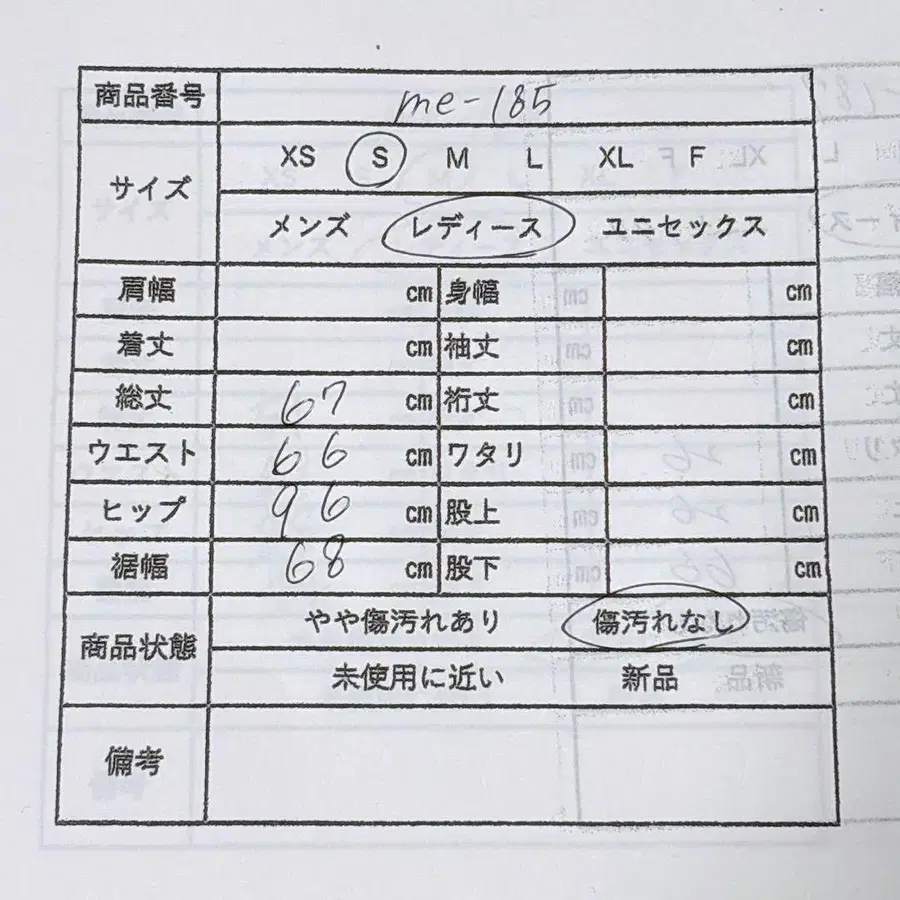 商品番号 me-185
サイズ XS S M L XL F
メンズ レディース ユニセックス
肩幅 cm 身幅 cm
着丈 cm 袖丈 cm
総丈 67 cm 裄丈 cm
ウエスト 66 cm ワタリ cm
ヒップ 96 cm 股上 cm
裾幅 68 cm 股下 cm
商品状態 やや傷汚れあり 傷汚れなし
未使用に近い 新品
備考